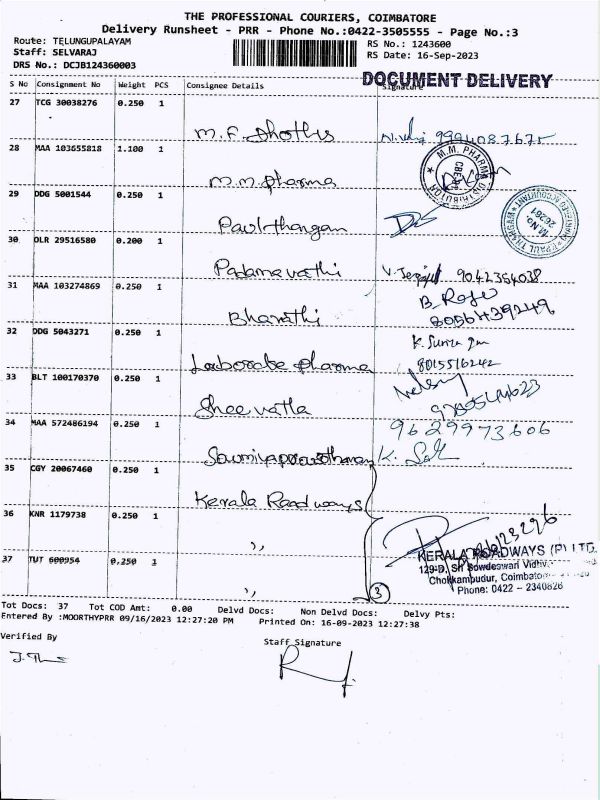 THE PROFESSIONAL COURIERS, COIMBATORE
Delivery Runsheet - PRR - Phone No.:0422-3505555 - Page No.:3
Route: TELUNGUPALAYAM
Staff: SELVARAJ
DRS No.: DCJB124360003
RS No.: 1243600
RS Date: 16-Sep-2023
DOCUMENT DELIVERY
S No Consignment No Weight PCS Consignee Details Signature
27 TCG 30038276 0.250 1
M.F. 
28 MAA 103655818 1.100 1
M.M. Pharma
M.M. PHARMA DISTRIBUTOR
29 DDG 5001544 0.250 1
Paulthangam
30 DLR 29516580 0.200 1
Padamavathi 9042354038
31 MAA 103274869 0.250 1
Bharathi B. Raju
8056439249
32 DDG 5043271 0.250 1
Laborate pharma 8015516242
33 BLT 100170370 0.250 1
Shee vatla
34 MAA 572486194 0.250 1
9629973606
35 CGY 20067460 0.250 1
Kerala Roadways
36 KNR 1179738 0.250 1
,,
37 TUT 600954 0.250 1
,,
3
KERALA ROADWAYS (P) LTD.
129-D, Sri Sowdeswari
Chokkampudur, Coimbatore
Phone: 0422 - 2340826
Tot Docs: 37 Tot COD Amt: 0.00 Delvd Docs: Non Delvd Docs: Delvy Pts:
Entered By :MOORTHYPRR 09/16/2023 12:27:20 PM Printed On: 16-09-2023 12:27:38
Verified By
Staff Signature